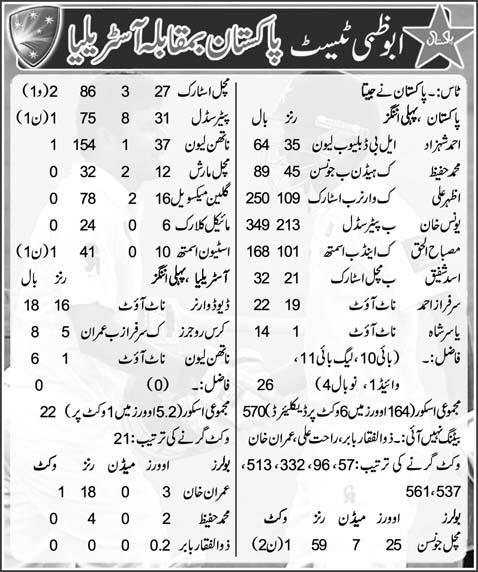 ابوظہبی ٹیسٹ پاکستان بمقابلہ آسٹریلیا
ٹاس:۔ پاکستان نے جیتا
پاکستان، پہلی اننگز رنز بال
احمد شہزاد ایل بی ڈبلیو ب لیون 35 64
محمد حفیظ ک ہیڈن ب جونسن 45 89
اظہر علی ک وارنر ب اسٹارک 109 250
یونس خان ب پیٹر سڈل 213 349
مصباح الحق ک اینڈ ب اسمتھ 101 168
اسد شفیق ب مچل اسٹارک 21 32
سرفراز احمد ناٹ آؤٹ 19 22
یاسر شاہ ناٹ آؤٹ 1 14
فاضل:۔ (بائی 10، لیگ بائی 11،
وائیڈ 1، نو بال 4) 26
مجموعی اسکور (164 اوورز میں 6 وکٹ پر ڈیکلیئرڈ) 570
بیٹنگ نہیں آئی:۔ ذوالفقار بابر، راحت علی، عمران خان
وکٹ گرنے کی ترتیب: 57، 96، 332، 513،
537، 561
بولرز اوورز میڈن رنز وکٹ
مچل جونسن 25 7 59 1(ن2)
مچل اسٹارک 27 3 86 2(و1)
پیٹر سڈل 31 8 75 1(ن1)
ناتھن لیون 37 1 154 1
مچل مارش 12 2 32 0
گلین میکسویل 16 2 78 0
مائیکل کلارک 6 0 24 0
اسٹیون اسمتھ 10 0 41 1(ن1)
آسٹریلیا، پہلی اننگز رنز بال
ڈیوڈ وارنر ناٹ آؤٹ 16 18
کرس روجرز ک سرفراز ب عمران 5 8
ناتھن لیون ناٹ آؤٹ 1 6
فاضل:۔ (0) 0
مجموعی اسکور (5.2 اوورز میں 1 وکٹ پر) 22
وکٹ گرنے کی ترتیب: 21
بولرز اوورز میڈن رنز وکٹ
عمران خان 3 0 18 1
محمد حفیظ 2 0 4 0
ذوالفقار بابر 0.2 0 0 0